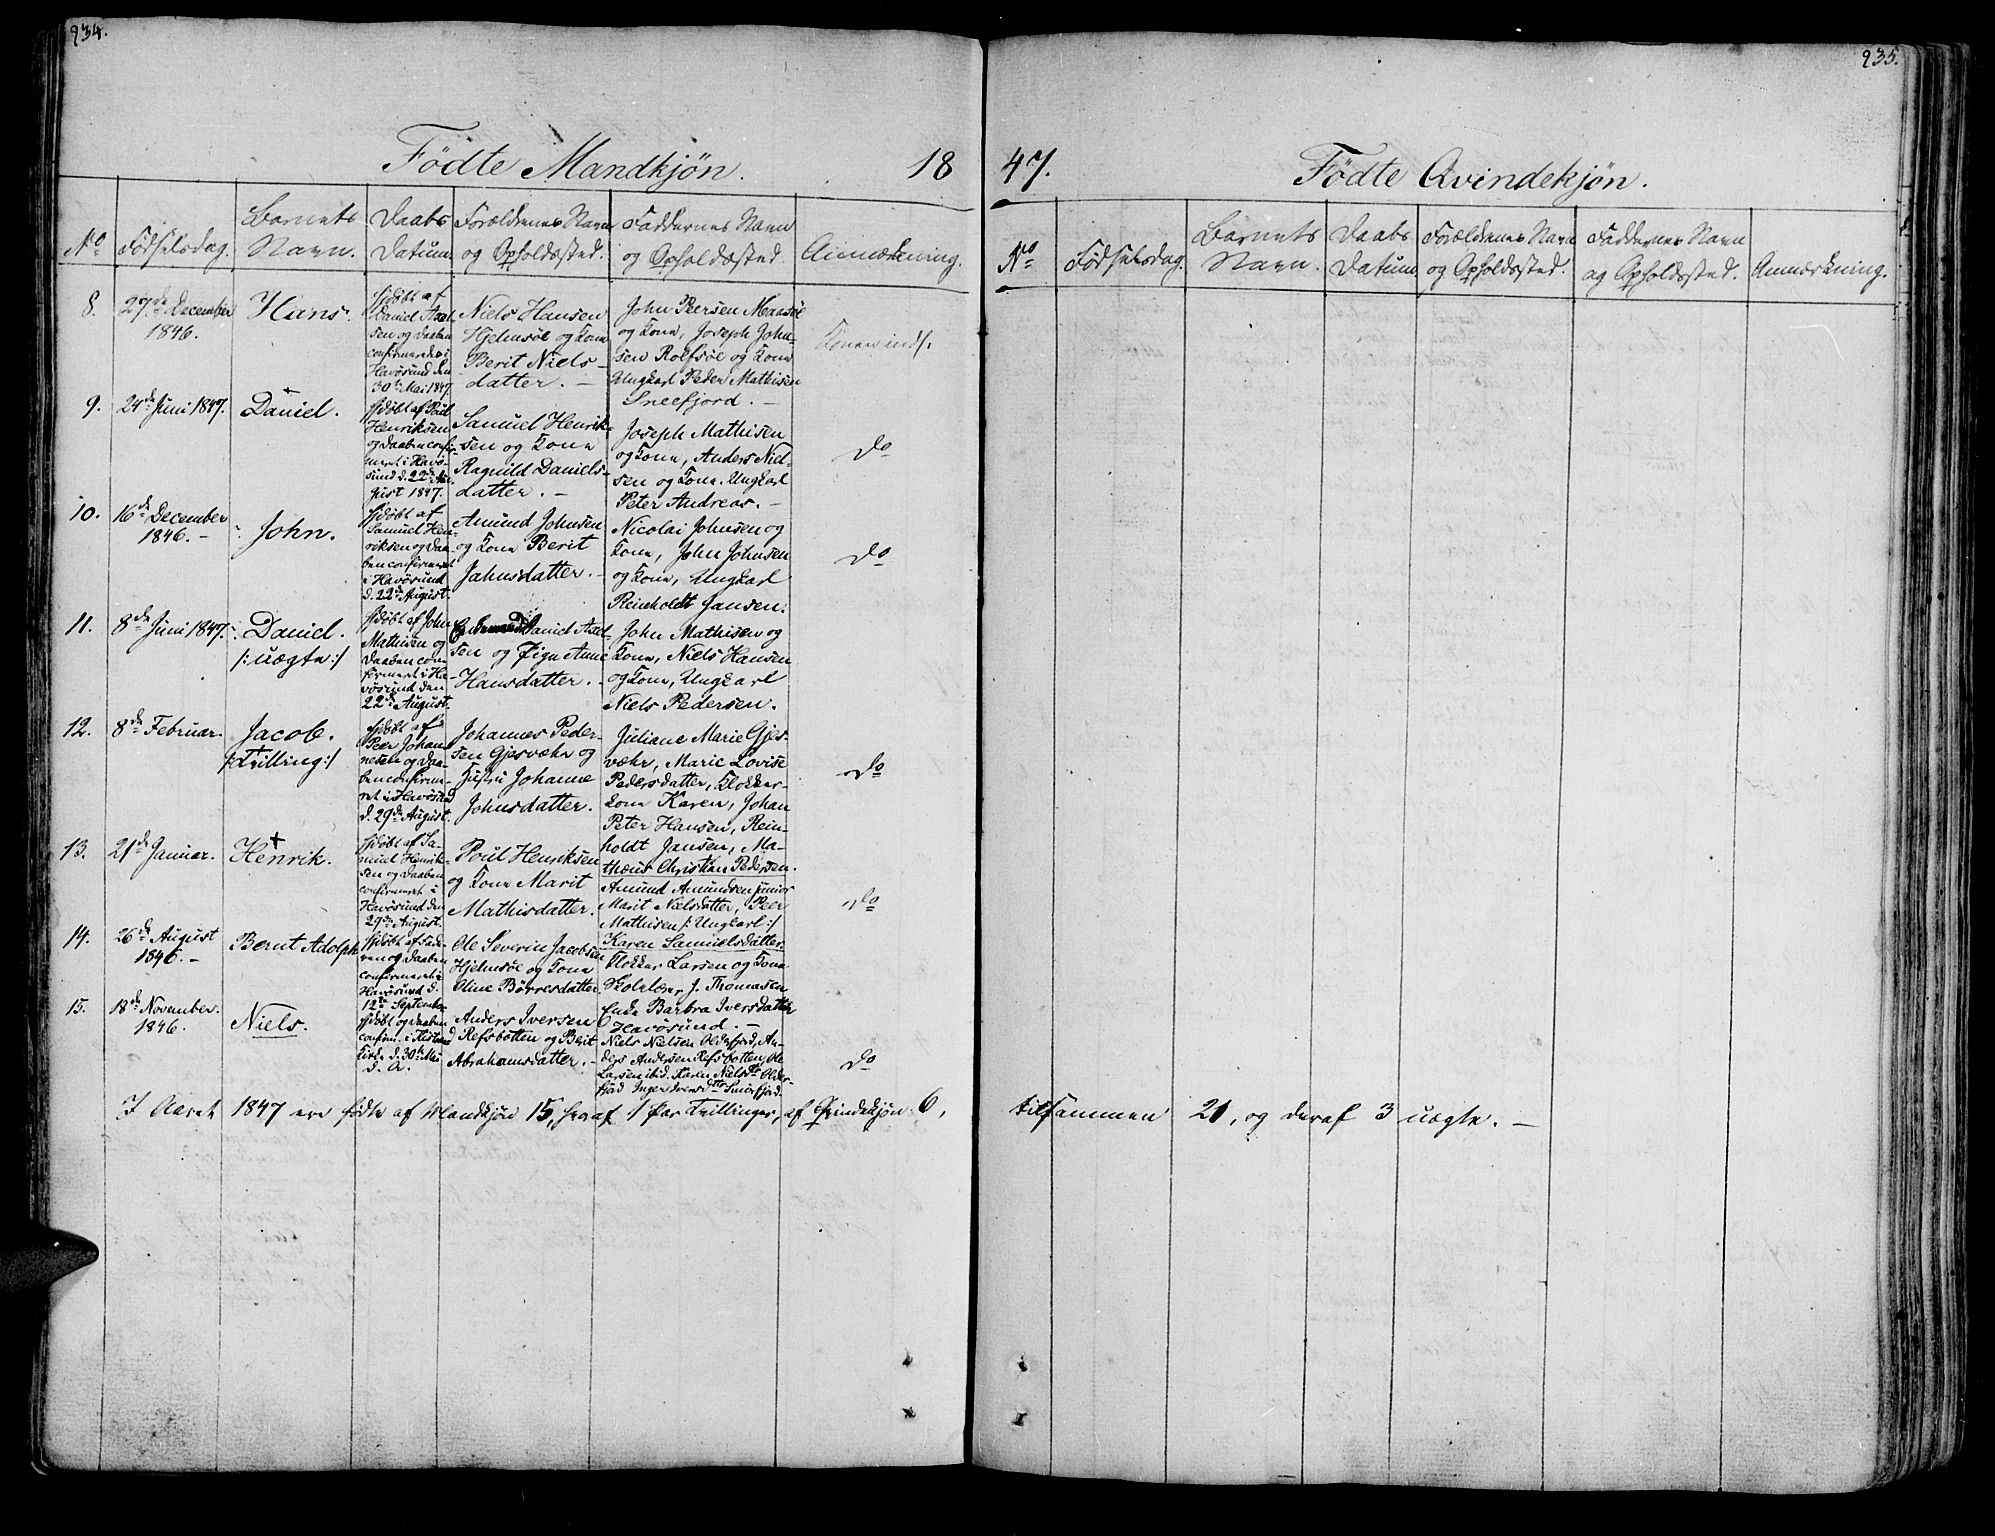 234.
235.
Fødte Mandkjøn. 18
47. Fødte Qvindekjøn.
No Fødselsdag. Barnets Navn. Daabs Datum. Forældrenes Navn og Opholdssted. Faddernes Navn og Opholdssted. Anmærkning.
No Fødselsdag. Barnets Navn. Daabs Datum. Forældrenes Navn og Opholdssted. Faddernes Navn og Opholdssted. Anmærkning.
8.
27de December
1846.
Hans.
hjdøbt af
Daniel Axel-
sen og Daaben
confirmeret i
Havøsund den
30te Mai 1847.
Niels Hansen
Hjelmsøe og Kone
Berit Niels-
datter. –
John Peersen Maasøe
og Kone, Joseph John-
sen Rolfsøe og Kone
Ungkarl Peder Mathisen
Sneefjord. –
Konen inds.
9.
24de Juni 1847.
Daniel.
hjdøbt af Poul
Henriksen
og Daaben confir-
meret i Havø-
sund d. 22de Au-
gust 1847.
Samuel Henrik-
sen og Kone
Ragnild Daniels-
datter. –
Joseph Mathisen
og Kone, Anders Niel-
sen og Kone. Ungkarl
Peter Andreas. –
Do
10.
16de December
1846. –
John.
hjdøbt af
Samuel Hen-
riksen og Daa-
ben confirmeret
i Havøsund
d. 22de August.
Amund Johnsen
og Kone Berit
Jahnsdatter. –
Nicolai Johnsen og
Kone, John Johnsen
og Kone, Ungkarl
Reinholdt Jansen.
Do
11.
8de Juni 1847.
Daniel.
/:uægte:/
hjdøbt af John
Mathisen og
Daaben con-
firmeret i Ha-
vøsund den
22de August.
Daniel Axel-
sen og Pige Anne
Hansdatter. –
John Mathisen og
Kone, Niels Hansen
og Kone, Ungkarl
Niels Pedersen.
12.
8de Februar.
Jacob.
/:Tvilling:/
hjdøbt af
Peer Johan-
nesen og Daa-
ben confirme-
ret i Havøsund
d. 29de August.
Johannes Peder-
sen Gjesvæhr og
Hustru Johanne
Johnsdatter.
Juliane Marie Gjes-
væhr, Marie Lovise
Pedersdatter, Klokker-
kone Karen, Johan
Peter Hansen, Rein-
holdt Jansen, Ma-
thæus Christian Pedersen.
Do
13.
21de Januar.
Henrik.
hjdøbt af Sa-
muel Henrik-
sen og Daaben
confirmeret i
Havøsund den
29de August.
Poul Henriksen
og Kone Marit
Mathisdatter.
Amund Amundsen junior
Marit Nielsdatter, Peer
Mathisen /:Ungkarl:/
Karen Samuelsdatter.
Do
14.
26de August
1846. –
Bernt Adolph
og Daaben
confirmeret i
Havøsund d.
12te September
Ole Severin Jacobsen
Hjelmsøe og Kone
Oline Børresdatter.
Klokker Larsen og Kone
Skolelærer J. Thomasen
Enke Barbra Iversdatter
Havøsund. –
15.
18de November.
1846.
Niels.
hjdøbt og Daaben
confirm. i Kistrand
Kirke d. 30te Mai
d. A.
Anders Iversen
Refsbotten og Berit
Abrahamsdatter. –
Niels Nielsen Olderfjord, An-
ders Andersen Refsbotten, Ole
Larsen ibid. Karen Nielsdtr Older-
fjord Inger Iversdtr Smørfjord.
Do
I Aaret 1847 ere fødte af Mandkjøn 15, hvoraf 1 Par Tvillinger, af Qvindekjøn 6, tilsammen 21, og deraf 3 uægte. –